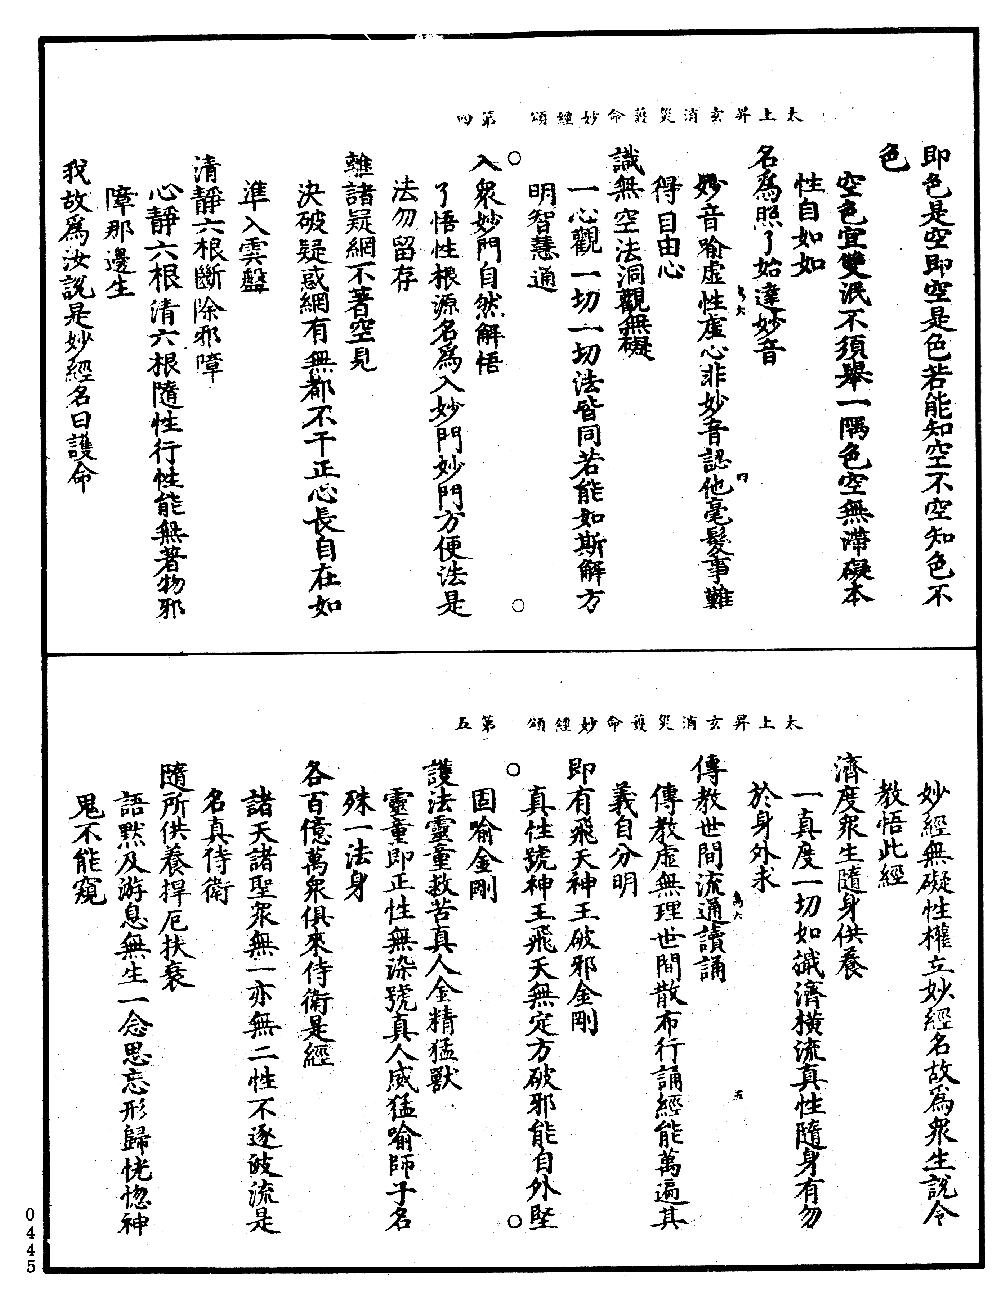 太上昇玄消災護命妙經頌　第四
即色是空即空是色若能知空不空知色不
色
空色宜雙泯不須舉一隅色空無滯礙本
性自如如
名爲照了始達妙音
妙音喻虛性虛心非妙音認他毫髮事難
得自由心
識無空法洞觀無礙
一心觀一切一切法皆同若能如斯解方
明智慧通
入衆妙門自然解悟
了悟性根源名爲入妙門妙門方便法是
法勿留存
離諸疑網不著空見
決破疑惑網有無都不干正心長自在如
準入雲盤
清靜六根斷除邪障
心靜六根清六根隨性行性能無著物邪
障那邊生
我故爲汝說是妙經名曰護命
太上昇玄消災護命妙經頌　第五
妙經無礙性權立妙經名故爲衆生說令
教悟此經
濟度衆生隨身供養
一真度一切如識濟橫流真性隨身有勿
於身外求
傳教世間流通讀誦
傳教虛無理世間散布行誦經能萬遍其
義自分明
即有飛天神王破邪金剛
真性號神王飛天無定方破邪能自外堅
固喻金剛
護法靈童救苦真人金精猛獸
靈童即正性無染號真人威猛喻師子名
殊一法身
各百億萬衆俱來侍衛是經
諸天諸聖衆無一亦無二性不逐破流是
名真侍衛
隨所供養捍厄扶衰
語默及游息無生一念思忘形歸恍惚神
鬼不能窺
0445